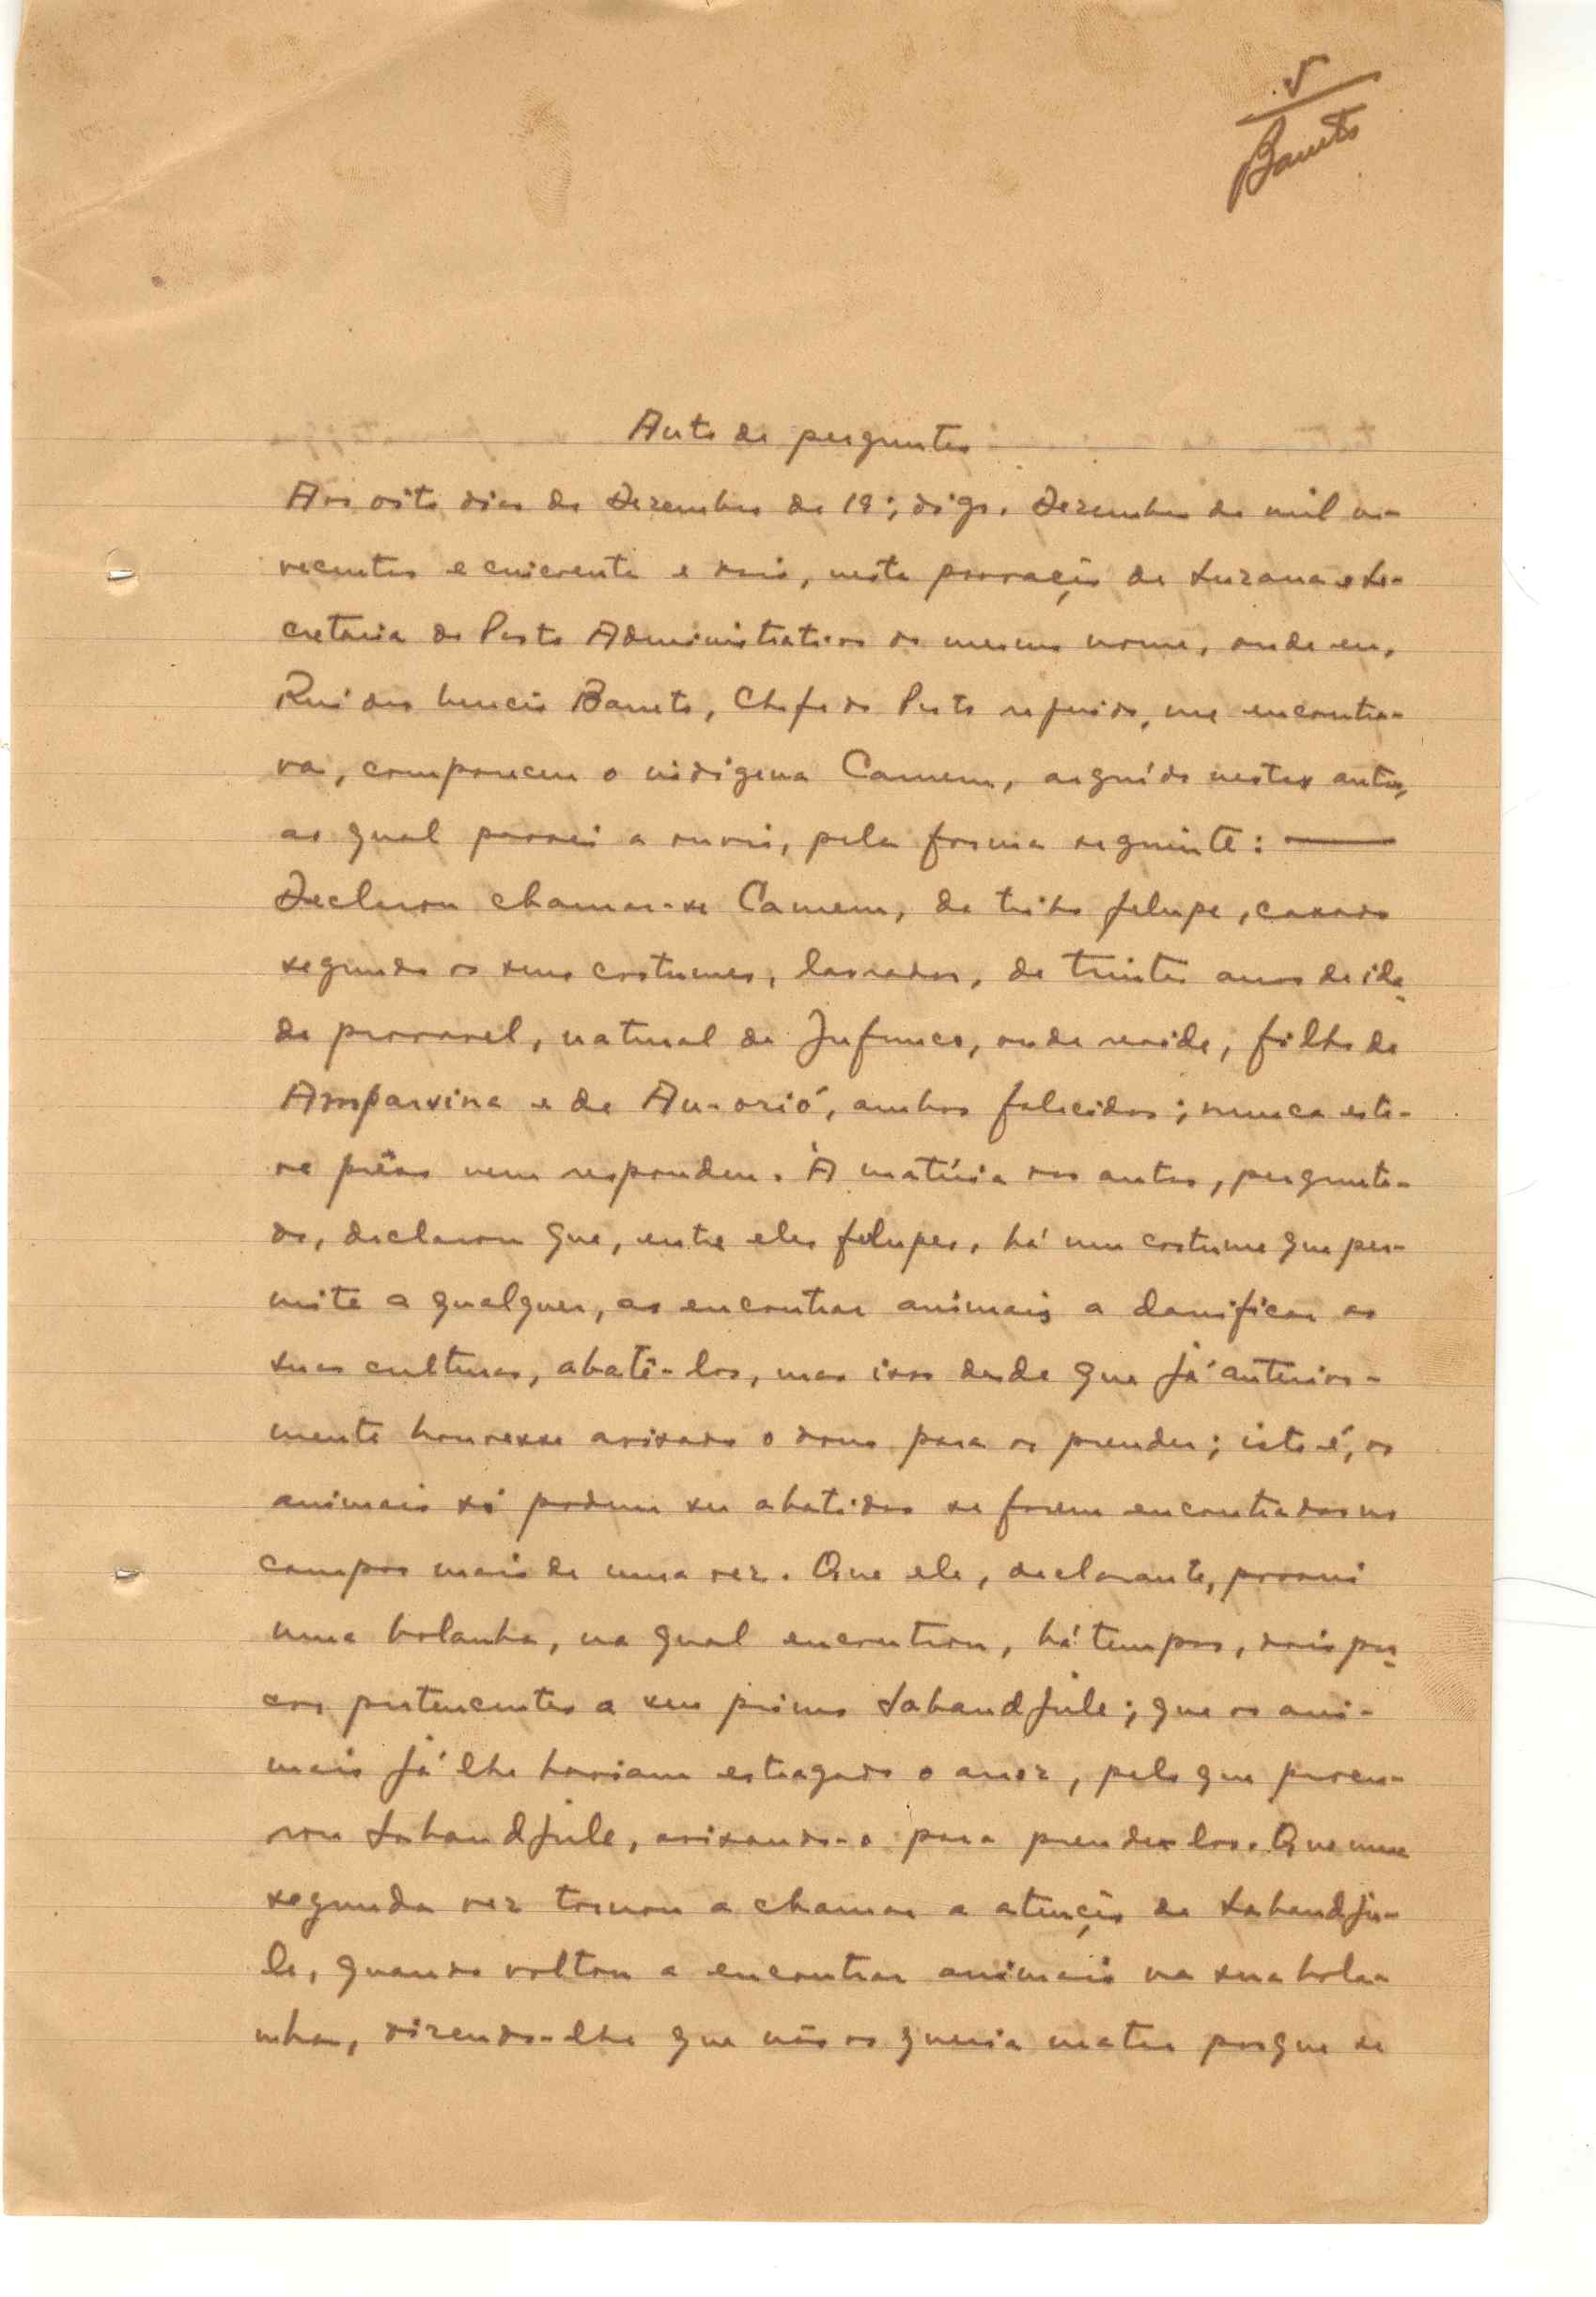 5
Barreto
Auto de perguntas
Aos oito dias de Dezembro de 19; digo, Dezembro de mil no-
vecentos e cincoenta e dois, nesta povoação de Suzana e Se-
cretaria do Posto Administrativo do mesmo nome, onde eu,
Rui dos Barreto, Chefe do Posto referido, me encontra-
va, compareceu o indigena Camem, arguído nestes autos,
ao qual passei a ouvir, pela forma seguinte:
Declarou chamar-se Camem, da tribo felupe, casado
segundo os seus costumes, lavrador, de trinta anos de ida-
de provavel, natural de Jufunco, onde reside, filho de
Ampassina e de Au-orió, ambos falecidos; nunca este-
ve prêso nem respondeu. À matéria dos autos, pergunta-
do, declarou que, entre eles felupes, há um costume que per-
mite a qualquer, ao encontrar animais a danificar as
suas culturas, abatê-los, mas isso desde que já anterior-
mente houvesse avisado o dono para os prender; isto é, os
animais só podem ser abatidos se forem encontrados nos
campos mais de uma vez. Que ele, declarante, possui
uma bolanha, na qual encontrou, há tempos, dois por-
cos pertencentes a seu primo Sabandjule; que os ani-
mais já lhe haviam estragado o arroz, pelo que procu-
rou Sabandjule, avisando-o para prende-los. Que uma
segunda vez tornou a chamar a atenção de Sabandju-
le, quando voltou a encontrar animais na sua bola-
nha, dizendo-lhe que não os queria matar porque se